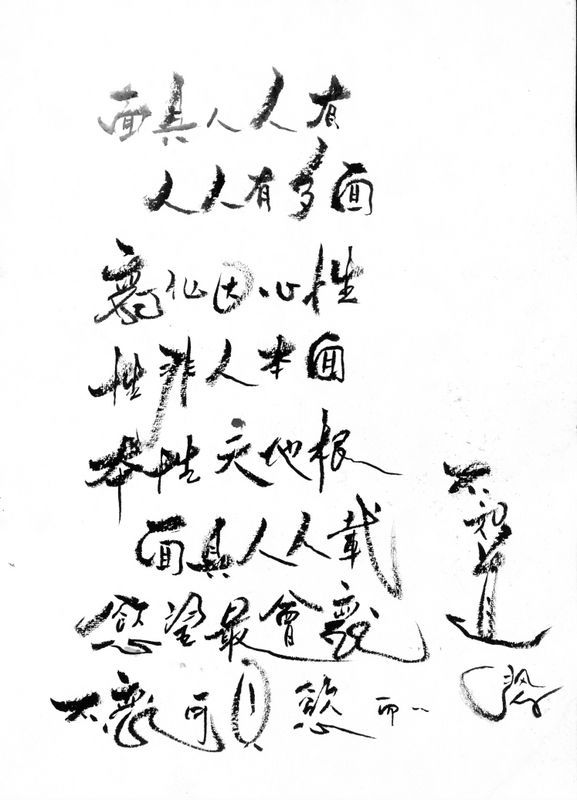 面具人人有
人人有多面
變化因心性
性非人本面
本性天地根
面具人人載
慾望最會變
不變可見慾
不知道